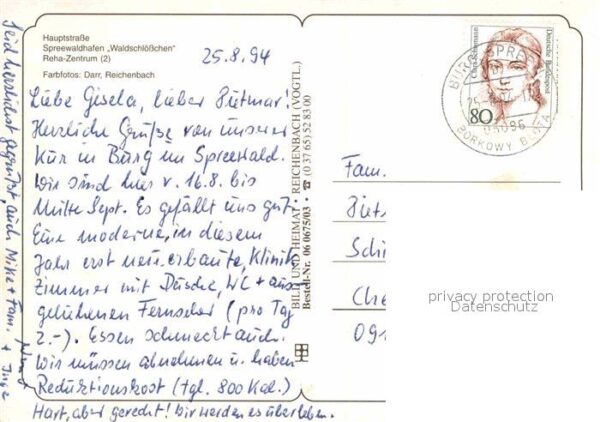 Hauptstraße
Spreewaldhafen „Waldschlößchen"
Reha-Zentrum (2)
Farbfotos: Darr, Reichenbach
25.8.94
Liebe Gisela, lieber Dietmar!
Herzliche Grüße von unserer
Kur in Burg im Spreewald.
Wir sind hier v. 16.8. bis
Mitte Sept. Es gefällt uns gut.
Eine moderne, in diesem
Jahr erst neu erbaute, Klinik
Zimmer mit Dusche, WC + aus-
geliehenen Fernseher (pro Tag
2.-). Essen schmeckt auch.
Wir müssen abnehmen u. haben
Reduktionskost (tgl. 800 Kal.)
Hart, aber gerecht! Wir werden es überleben.
Seid herzlichst gegrüßt, auch Mike + Fam.
+ Inge
BILD UND HEIMAT • REICHENBACH (VOGTL.)
Bestell-Nr. 06 0675/03 • ☎ (0 37 65) 52 83 00
Deutsche Bundespost
80
BORKOWY
Fam.
Che
091
privacy protection
Datenschutz